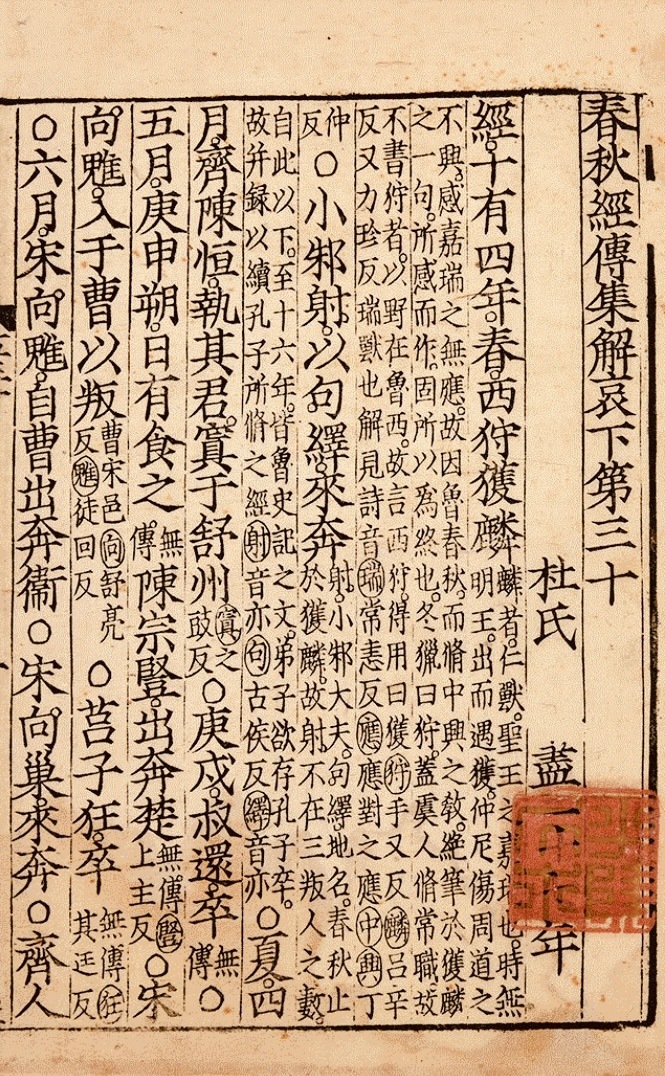 春秋經傳集解哀下第三十
杜氏 盡二十七年
經十有四年。春。西狩獲麟麟者。仁獸。聖王之嘉瑞也。時無明王。出而遇獲。仲尼傷周道之
不興。感嘉瑞之無應。故因魯春秋。而脩中興之教。絕筆於獲麟之一句。所感而作。固所以爲終也。冬獵曰狩。蓋虞人脩常職。故
不書狩者。以野在魯西。故言西狩。得用曰獲狩手又反麟呂辛反又力珍反瑞獸也解見詩音瑞常恚反應應對之應中興丁
仲反○小邾射。以句繹來奔射。小邾大夫。句繹。地名。春秋止於獲麟。故射不在三叛人之數。
自此以下。至十六年。皆魯史記之文。弟子欲存孔子卒。故并録以續孔子所脩之經射音亦句古侯反繹音亦○夏。四
月。齊陳恒。執其君。寘于舒州寘之豉反○庚戌。叔還卒無傳○
五月。庚申朔。日有食之無傳陳宗豎。出奔楚無傳豎上主反○宋
向魋。入于曹以叛曹宋邑向舒亮反魋徒回反○莒子狂。卒無傳狂其迋反
○六月。宋向魋。自曹出奔衞○宋向巢。來奔○齊人